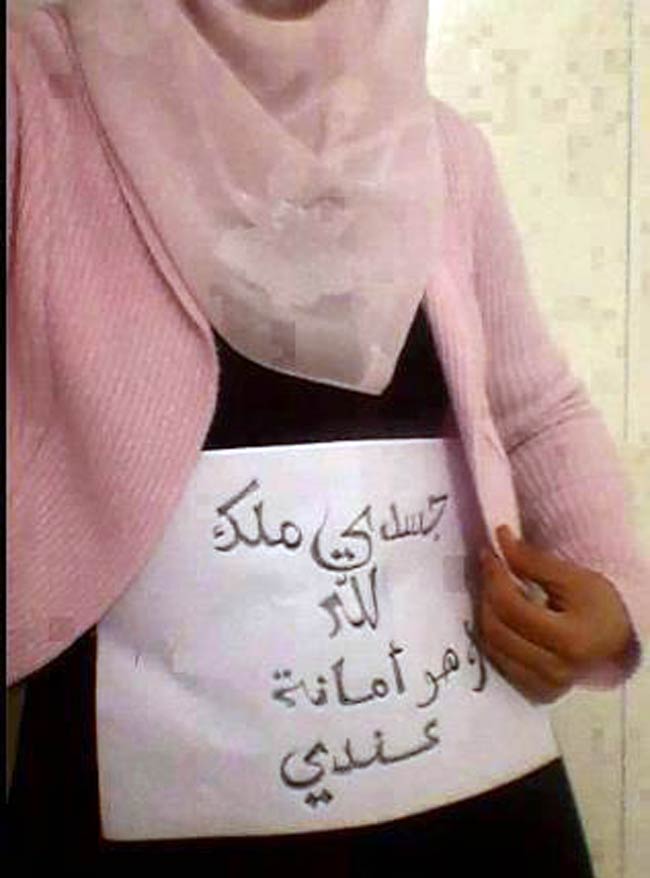 جسدي ملك
لله
و هو أمانة
عندي